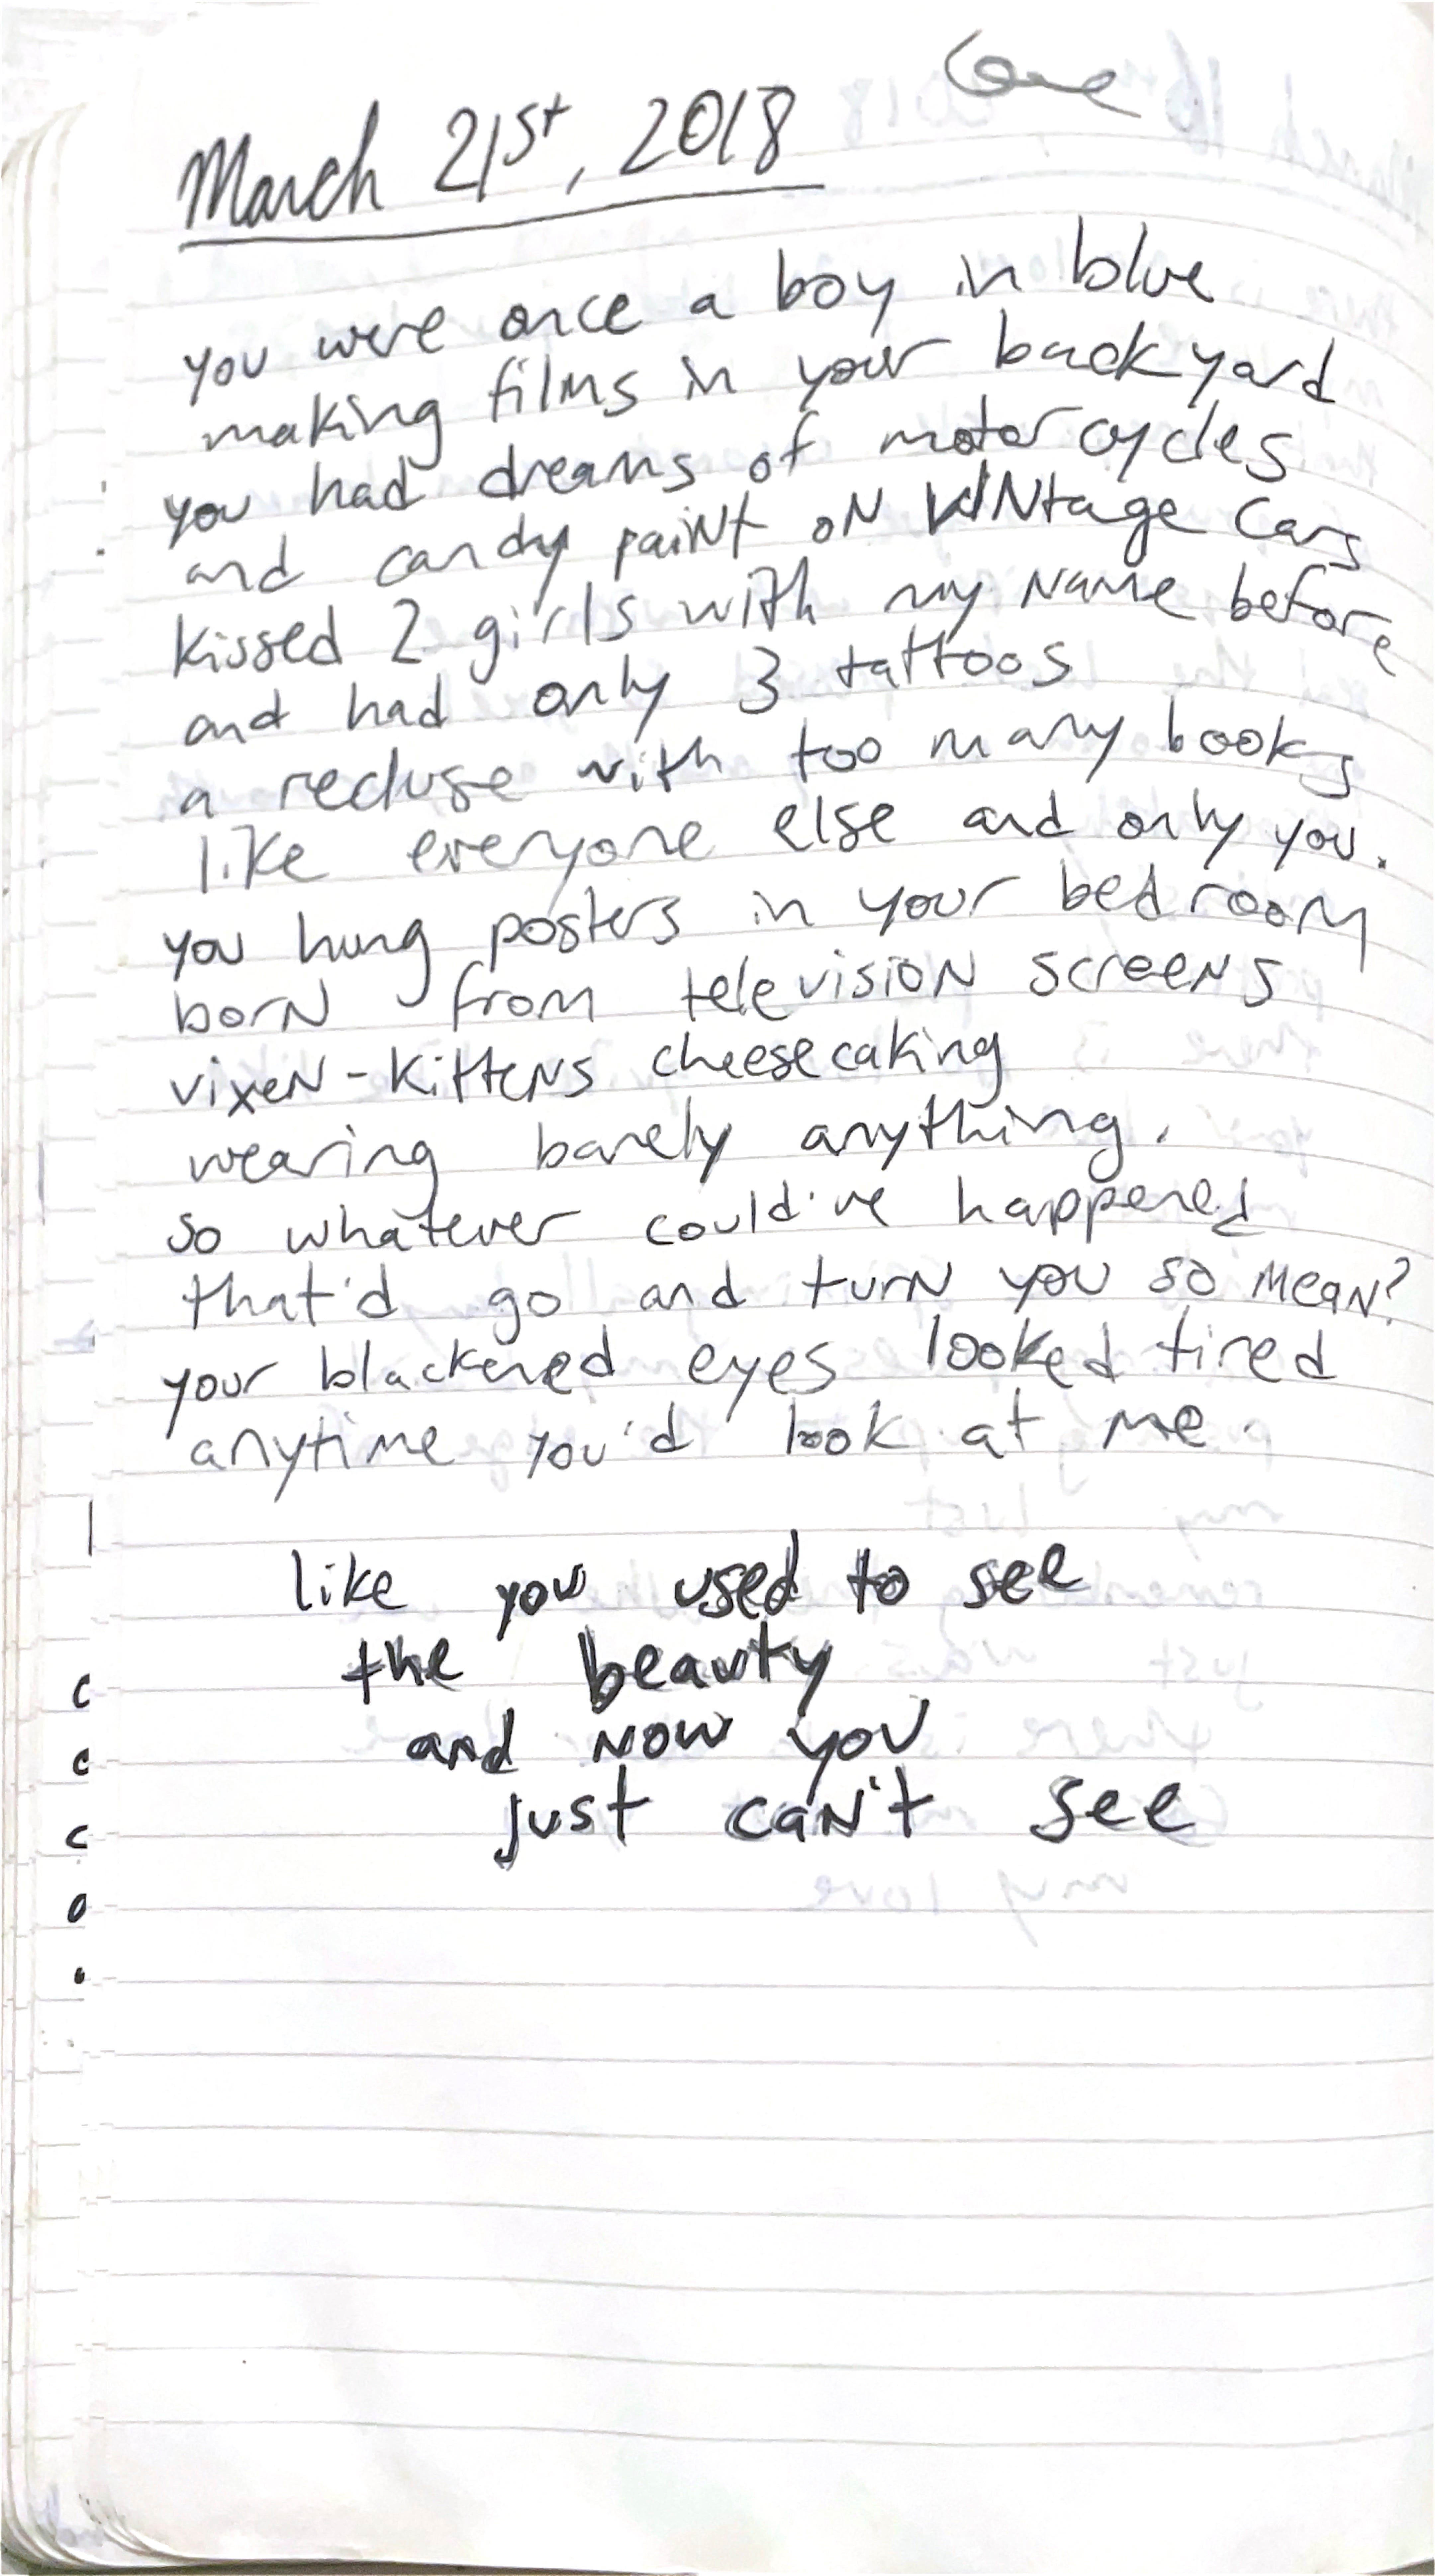 March 21st, 2018
you were once a boy in blue
making films in your backyard
you had dreams of motorcycles
and candy paint on VINtage cars
kissed 2 girls with my name before
and had only 3 tattoos
a recluse with too many books
like everyone else and only you.
you hung posters in your bedroom
born from television screens
vixen-kittens cheesecaking
wearing barely anything.
so whatever could've happened
that'd go and turn you so mean?
your blackened eyes looked tired
anytime you'd look at me.
like you used to see
the beauty
and now you
just can't see